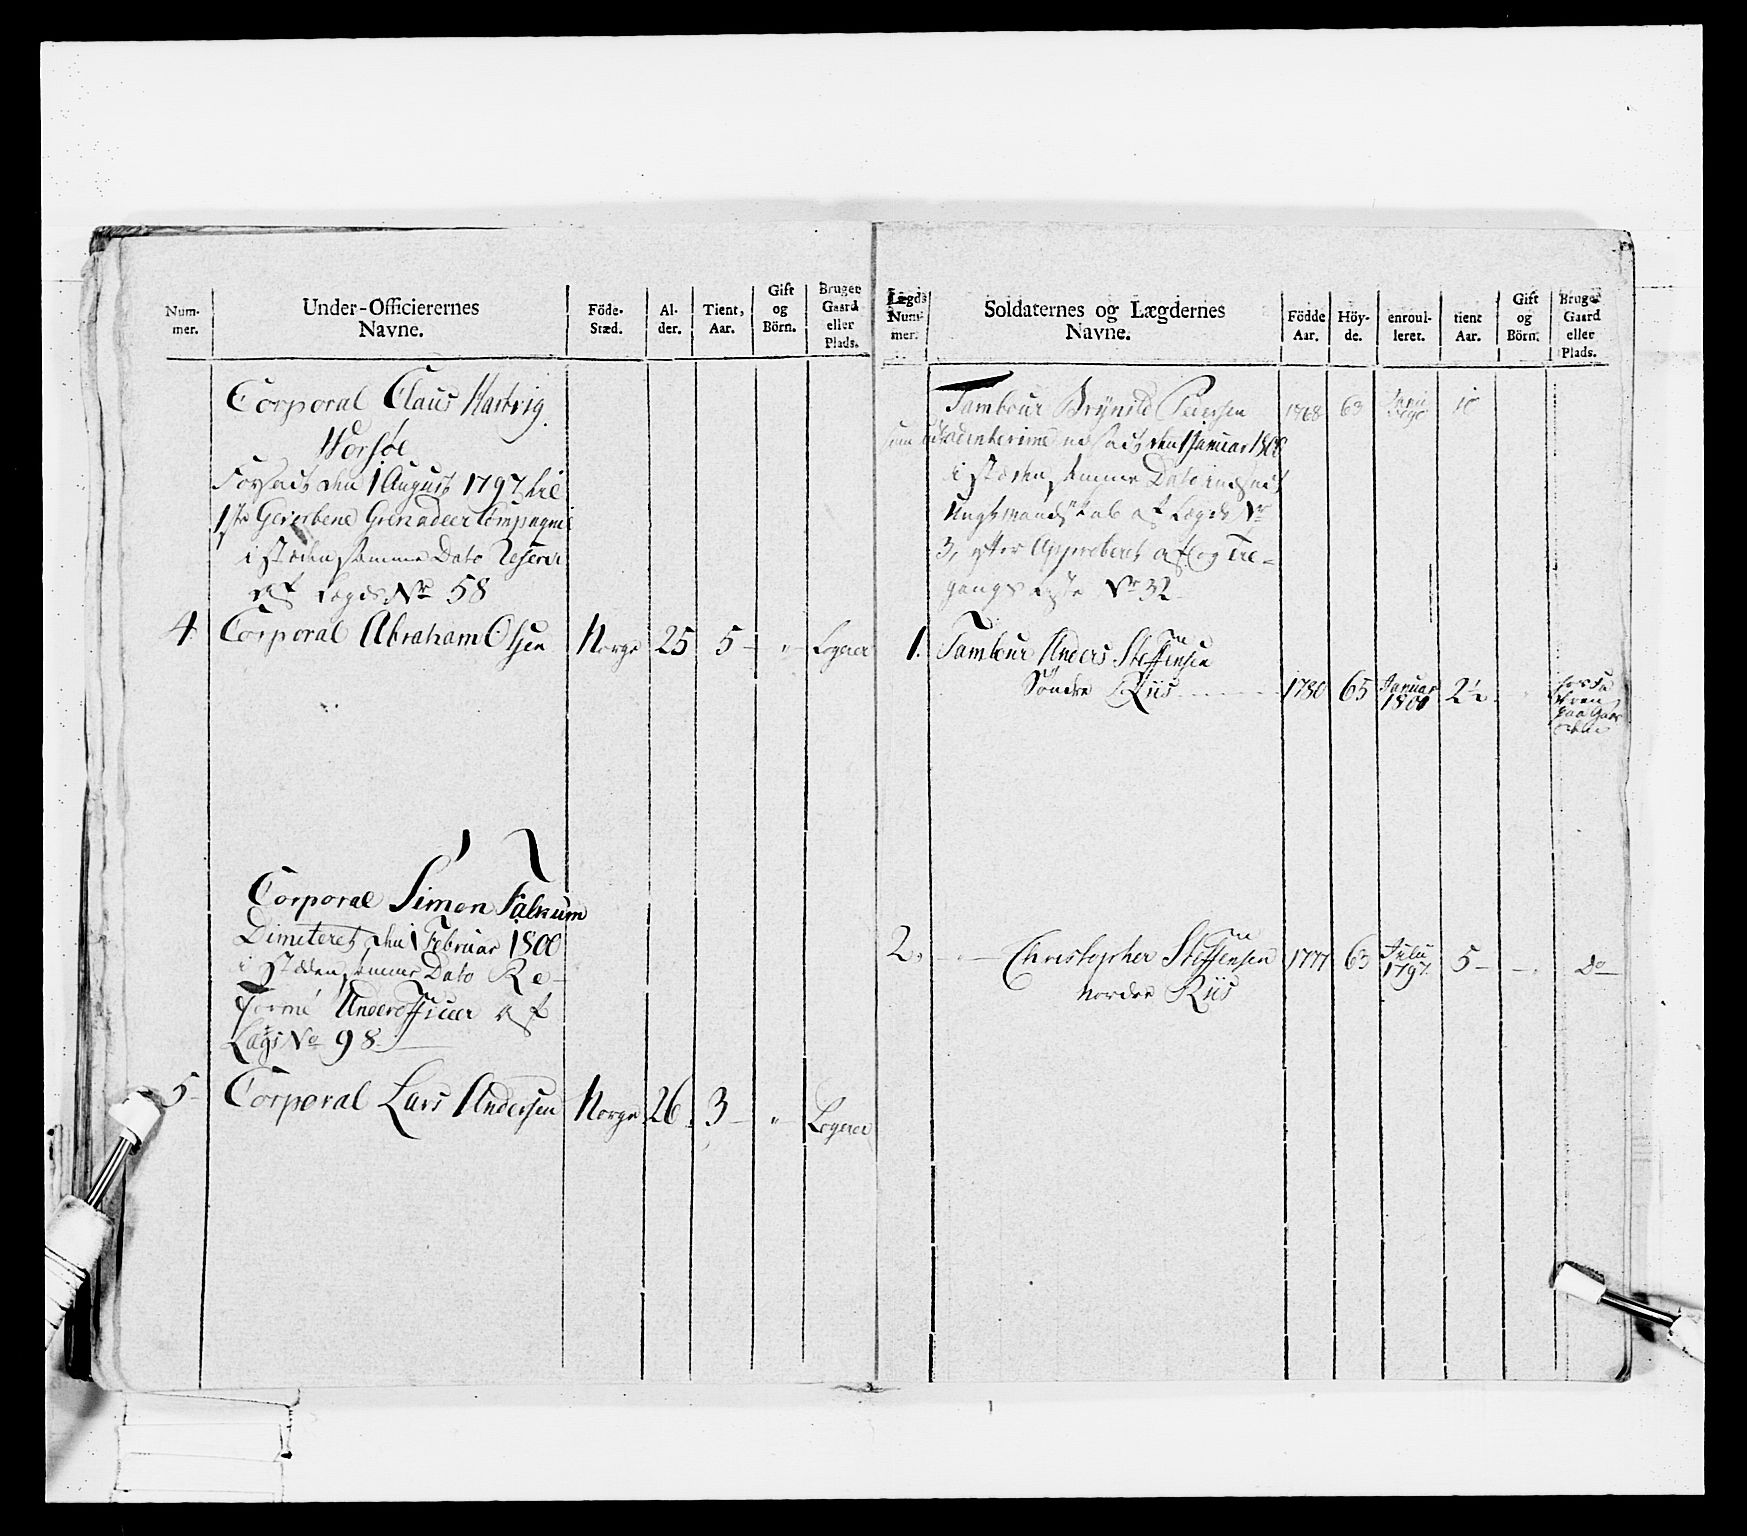 Num-
mer.
Under-Officierernes
Navne.
Föde-
Stæd.
Al-
der.
Tient,
Aar.
Gift
og
Börn.
Bruger
Gaard
eller
Plads.
Corporal Claus Hartvig
Worsøe
Forsadt den 1 August 1797 til
1ste Gevorbene Grenadeer Compagnie
i stæden samme Dato
af Lægds No 58
4. Corporal Abraham Olsen Norge 25 5 - " - Logerer
Corporal Simon Falkum
Dimiteret den 1 Februar 1800
i stæden samme Dato Re-
formé Underofficier af
Lægs No 98
5 - Corporal Lars Andersen Norge 26 3 - " - Logerer
Lægds
Num-
mer.
Soldaternes og Lægdernes
Navne.
Födde
Aar.
Höy-
de.
enroul-
leret.
tient
Aar.
Gift
og
Börn.
Bruger
Gaard
eller
Plads.
Tambour Brynild Pedersen 1768 63 10
den 1 Januar 1800
i stæden samme Dato indsadt
Ungt Mandskab af Lægds No
3, efter Approberet af og Til-
gangs Liste No 32
1. Tambour Anders Steffensen
Søndre Riis 1780 65 Januar 1800 2½
paa Gaar
den
2. - " - Christopher Steffensen 1777 63 July 1797 5 - - " Do
Nordre Riis